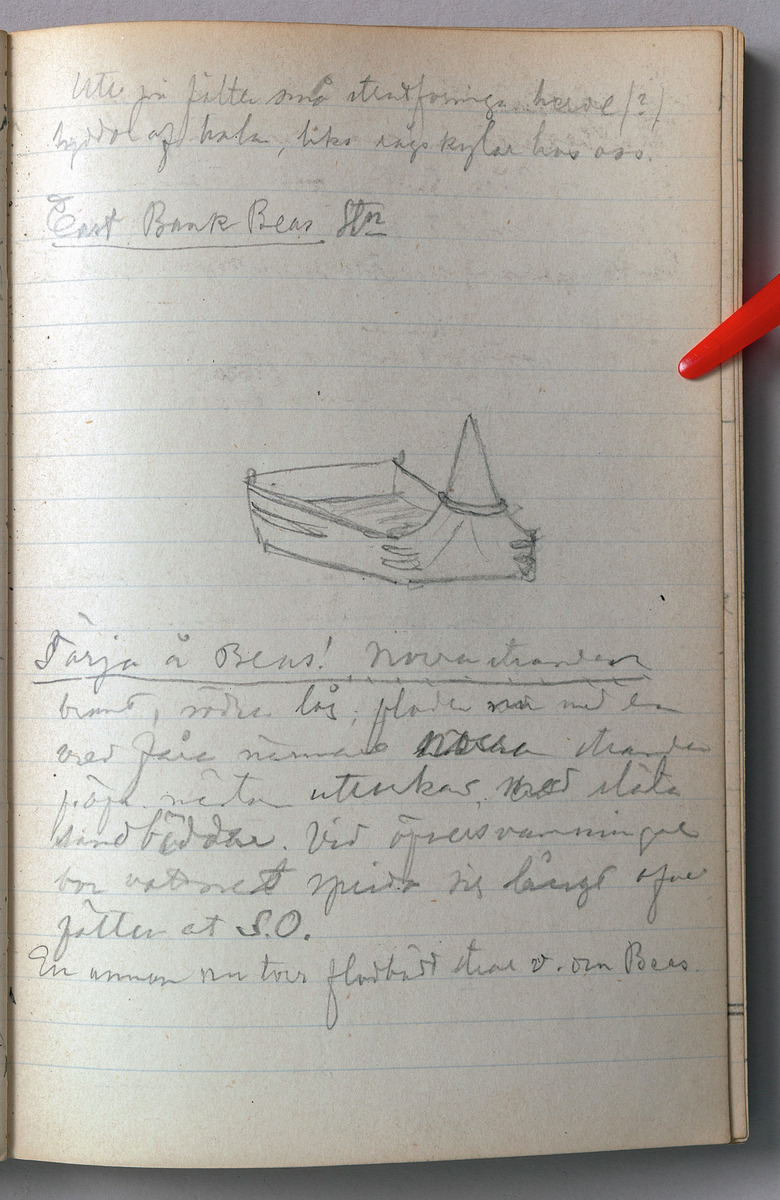 Ute på fälten små stentforniga (?)
af halm, lika rågskylar hos oss.
East Bank Beas Stn
Färja å Beas! Norra stranden
brant, södra låg; floden nu med en
bred fåra närmare norra stranden
med släta
sandbäddar. Vid öfversvämningar
bör vattnet sprida sig långt öfver
fälten åt S.O.
En annan nu torr flodbädd strax v. om Beas.